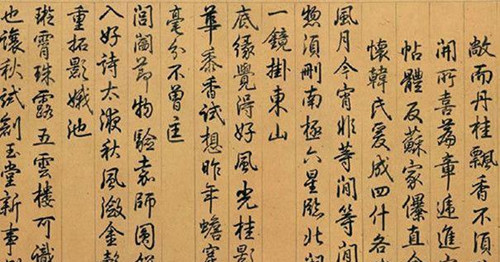 敞而丹桂飄香不須
開所喜篇章遞進
帖體反蘇家儤直
懷韓氏爰成四什各
風月今宵非等閒等閒
惣須刪南極六星臨北
一鏡掛東山
底緣覺得好風光桂影
華黍香試想昨年蟾
毫分不曾
閶闔節物驗嘉師圍
入好詩太液秋風激金
重拓影娥池
霄珠露五雲樓可識
也讓秋試創玉堂新事